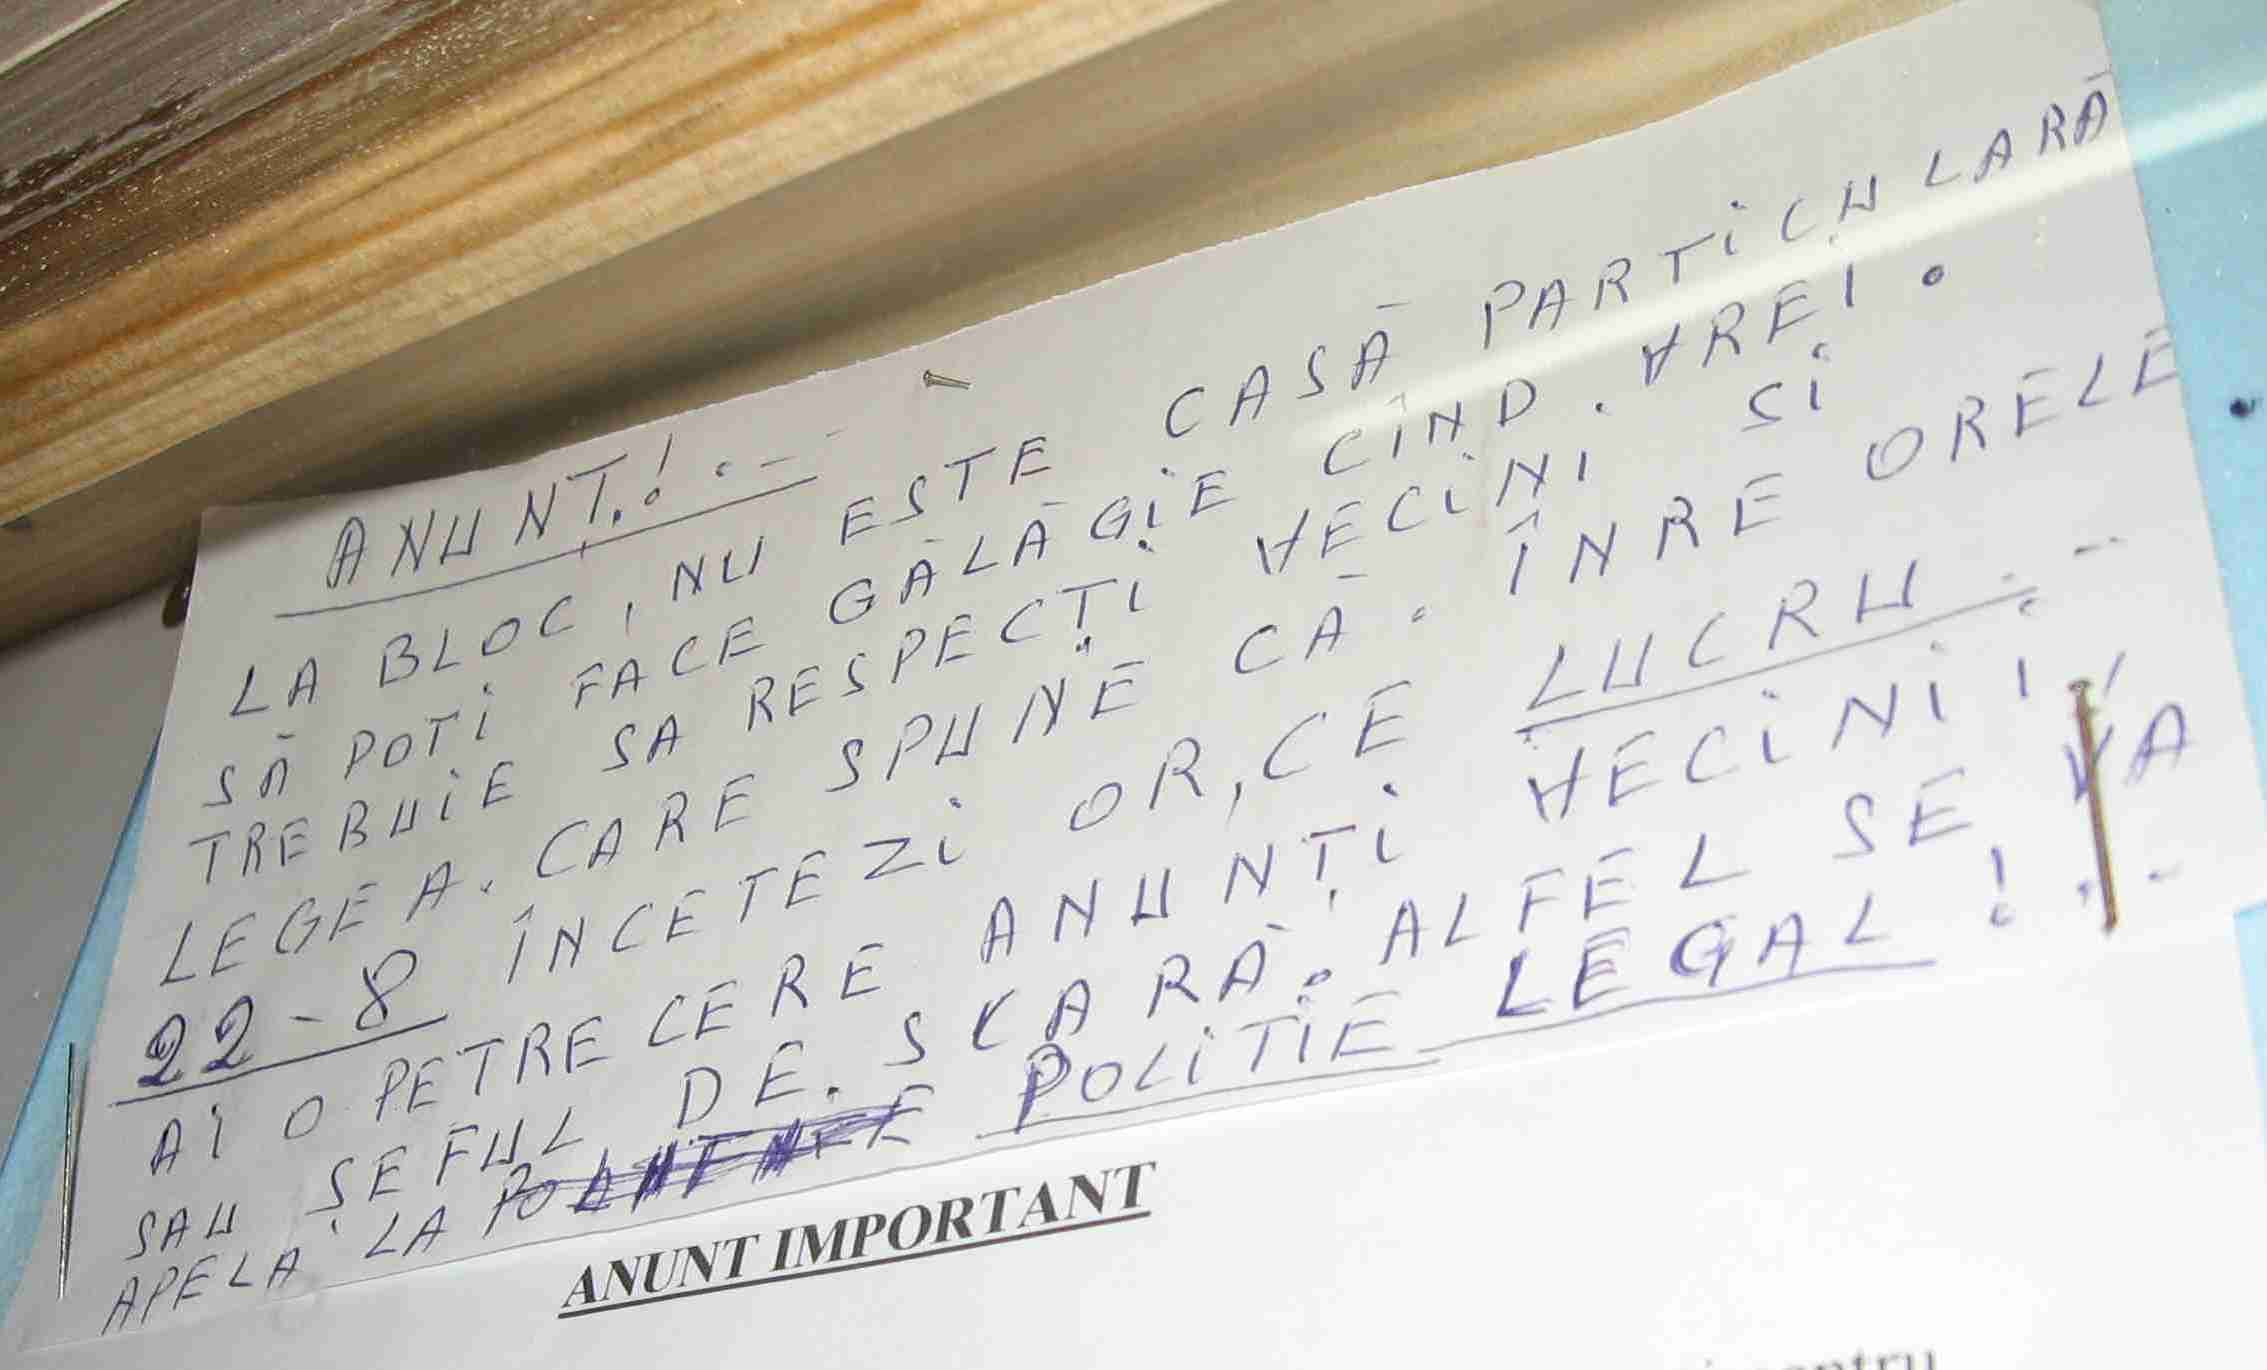 ANUNȚ! . -
LA BLOC, NU ESTE CASĂ PARTICULARĂ
SĂ POTI FACE GĂLĂGIE CÎND. VREI.
TREBUIE SA RESPECȚI VECINI SI
LEGEA. CARE SPUNE CĂ. ÎNRE ORELE
22-8 ÎNCETEZI OR,CE LUCRU . -
AI O PETRECERE ANUNȚI VECINI!
SAU ȘEFUL DE. SCARĂ. ALFEL SE VA
APELA LA POLITIE LEGAL! . -
ANUNT IMPORTANT